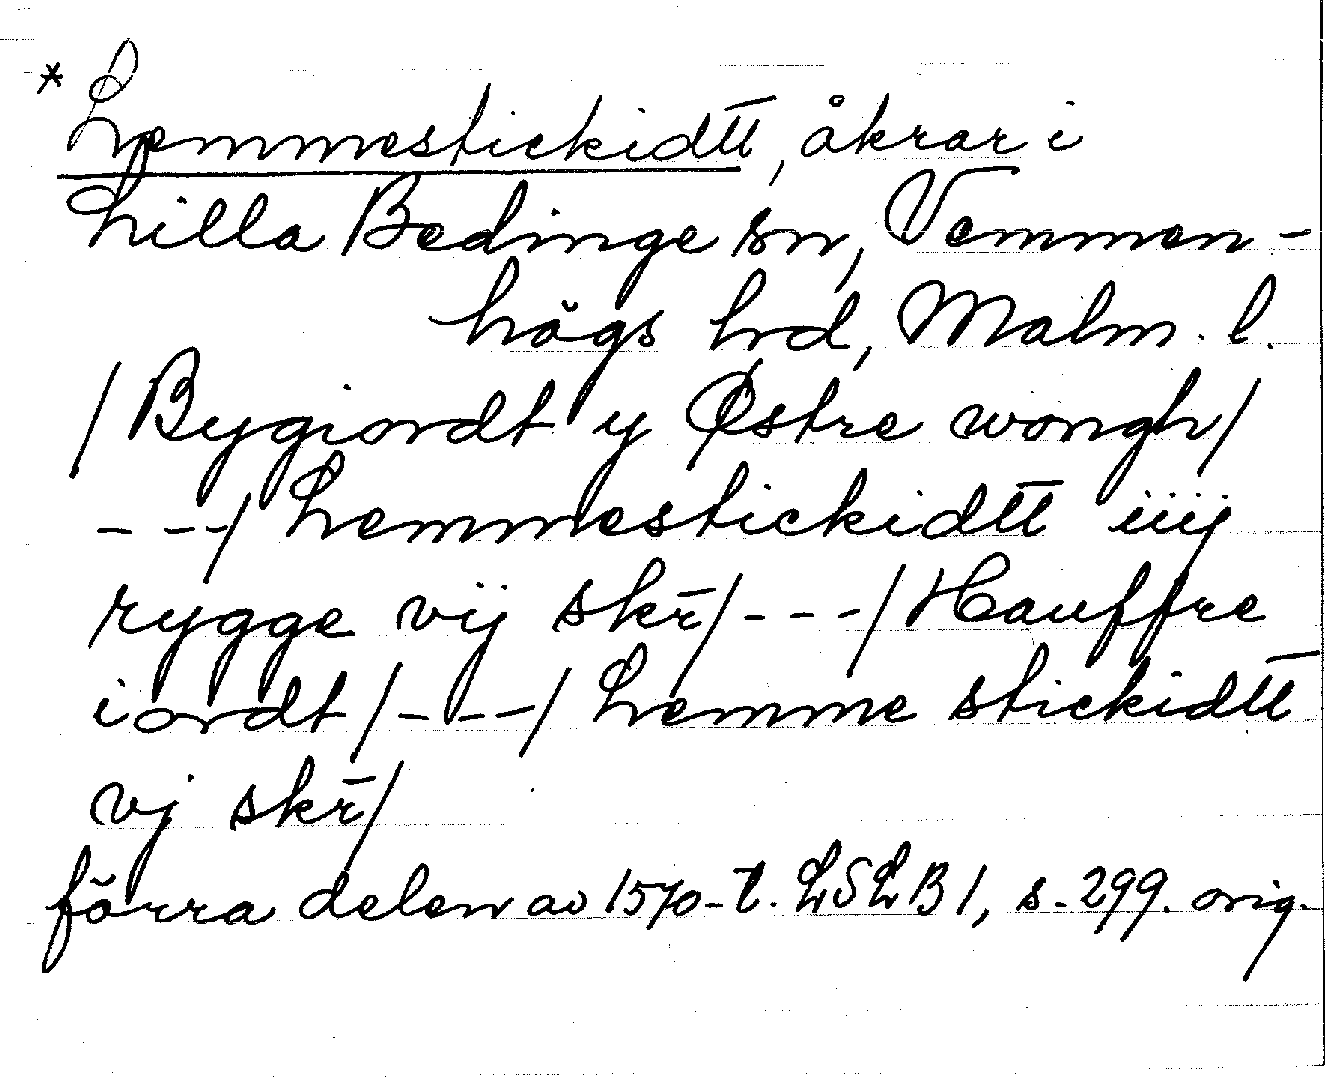 * Lemmestickidtt, åkrar i
Lilla Bedinge sn, Vemmen-
högs hrd, Malm. l.
/ Bygiordt y Østre wongh /
---/ Lemmestickidtt iiij
rygge vij skr̄ / --- / Hauffre
iordt / --- / Lemme stickidtt
vj skr̄ /
förra delen av 1570-t. LSLB 1, s. 299. orig.